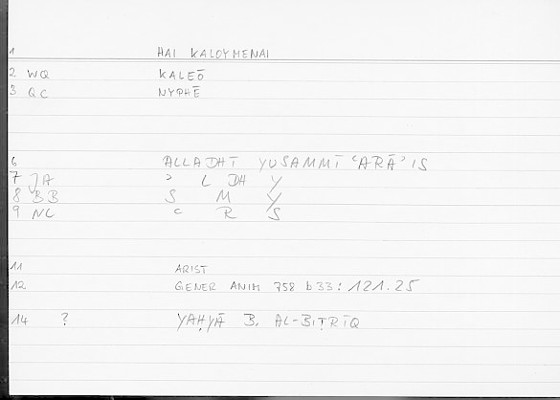 1 HAI KALOYMENAI
2 WQ KALEŌ
3 QC NYPHĒ
6 ALLADHĪ YUSAMMĪ ʿARĀʾIS
7 JA ʾ L DH Y
8 BB S M Y
9 NC ʿ R S
11 ARIST
12 GENER ANIM 758 b 33: 121.25
14 ? YAḤYĀ B. AL-BIṬRĪQ